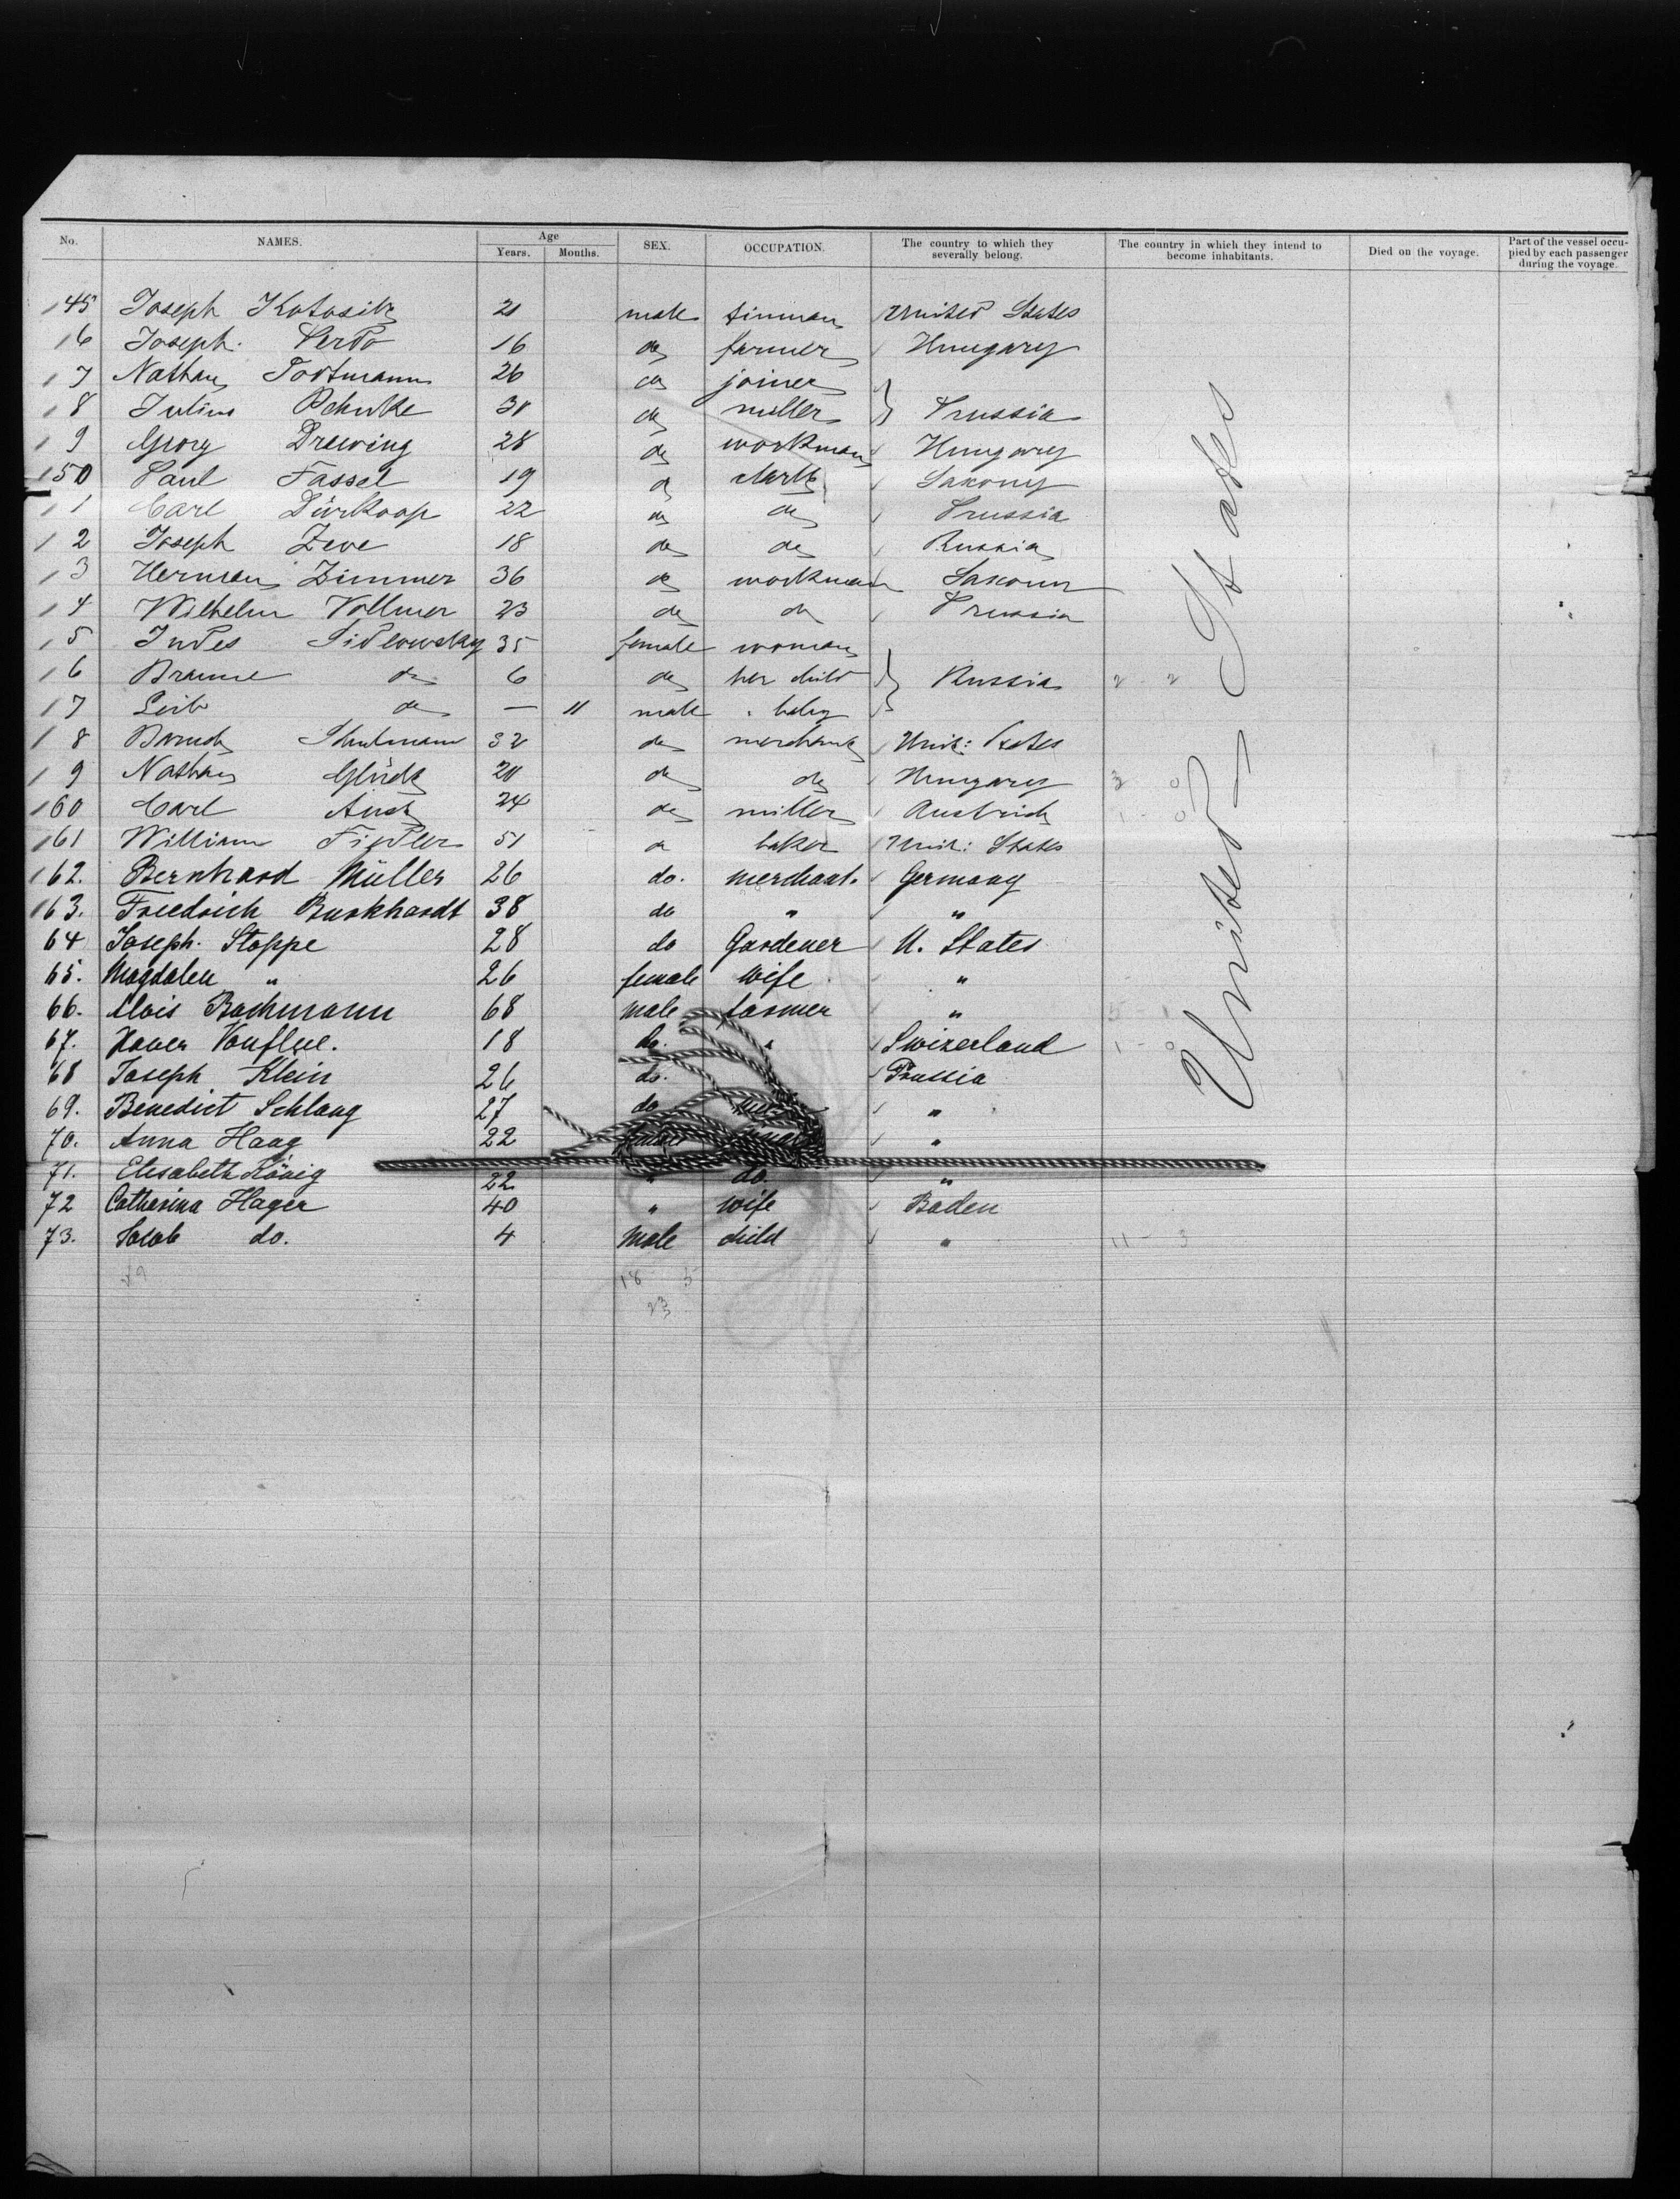 No. NAMES. Age Years. Months. SEX. OCCUPATION. The country to which they severally belong. The country in which they intend to become inhabitants. Died on the voyage. Part of the vessel occupied by each passenger during the voyage.
145 Joseph 21 male tinman United States
16 Joseph 16 do farmer Hungary
17 Nathan Portmann 26 do joiner
18 Julius 30 do miller Prussia
19 Georg Drewing 28 do workman Hungary
150 Paul Fassel 19 do clerk Saxony
11 Carl Dürkoop 22 do do Prussia
12 Joseph Zeve 18 do do Russia
13 Herman Zimmer 36 do workman Saxony
14 Wilhelm Vollmer 23 do do Prussia
15 Judes Sidlowsky 35 female woman
16 do 6 do her child Russia 2 - 2
17 Leib do — 11 male " baby
18 Baruch Schulmann 32 do merchant Unit: States
19 Nathan Glück 20 do do Hungary 3 - 0
160 Carl 24 do miller Austria 1 - 0
161 William Fidler 51 do baker Unit: States
162. Bernhard Müller 26 do. merchant. Germany
163. Friedrich Burkhardt 38 do " "
64 Joseph Stoppe 28 do Gardener U. States
65. Magdalen " 26 female wife "
66. Alois Bachmann 68 male farmer "
67. Xaver Vonflue. 18 do. " Swizerland 1 - 0
68 Joseph Klein 26 do. Prussia
69. Benedict Schlang 27 do "
70. Anna Haag 22 female "
71. Elisabeth König 22 " do. "
72 Catharina Hager 40 " wife Baden
73. Jacob do. 4 Male child " 11 - 3
United States
29 18 5
23